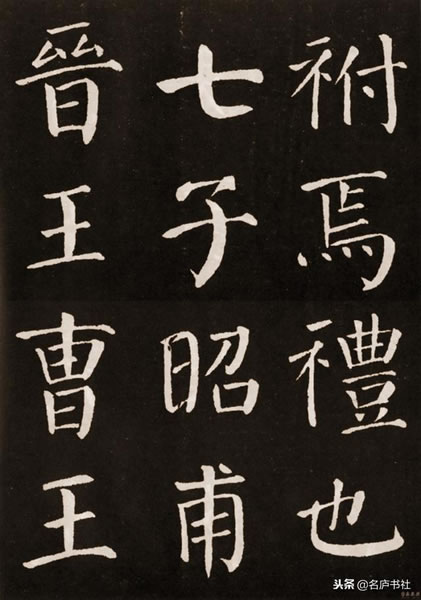 祔焉禮也
七子昭甫
晉王曺王
头条@名庐书社